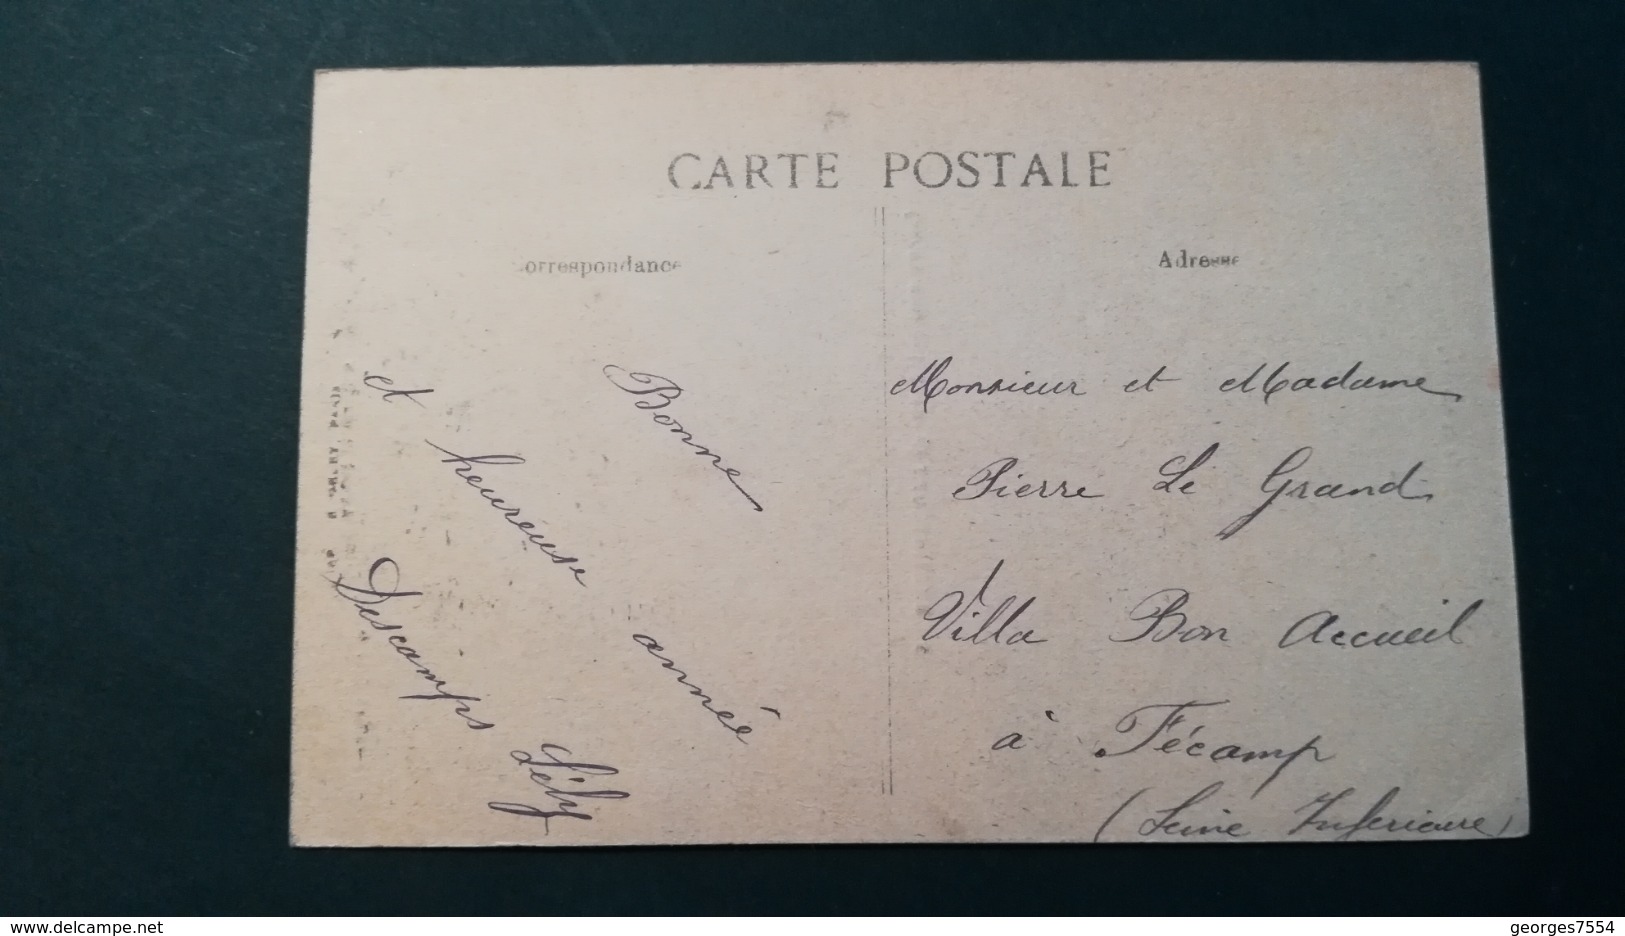 CARTE POSTALE
Correspondance
Adresse
Bonne
et heureuse année
Descamps
Monsieur et Madame
Pierre Le Grand
Villa Bon Accueil
à Fécamp
(Seine Inférieure)
www.delcampe.net
georges7554